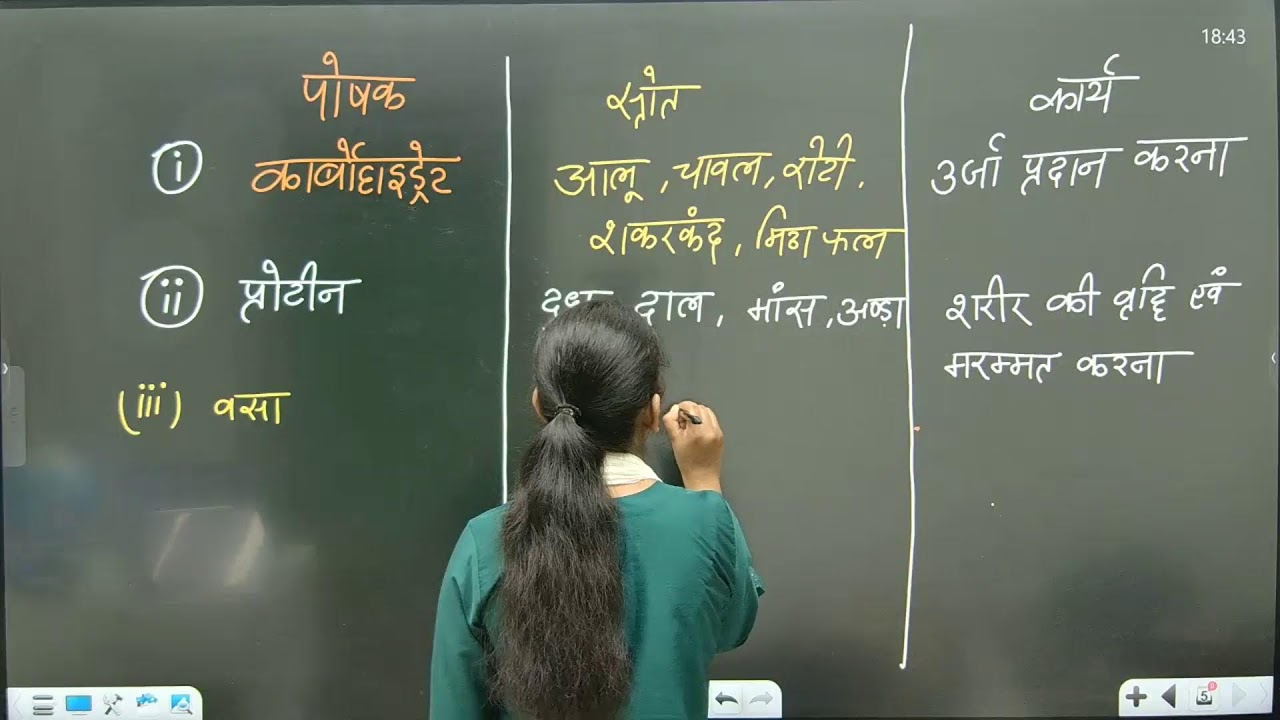 18:43
पोषक स्त्रोत कार्य
(i) कार्बोहाइड्रेट आलू, चावल, रोटी, उर्जा प्रदान करना
शकरकंद, मिठा फल
(ii) प्रोटीन दाल, मांस, अण्डा शरीर की वृद्धि एवं
मरम्मत करना
(iii) वसा
5